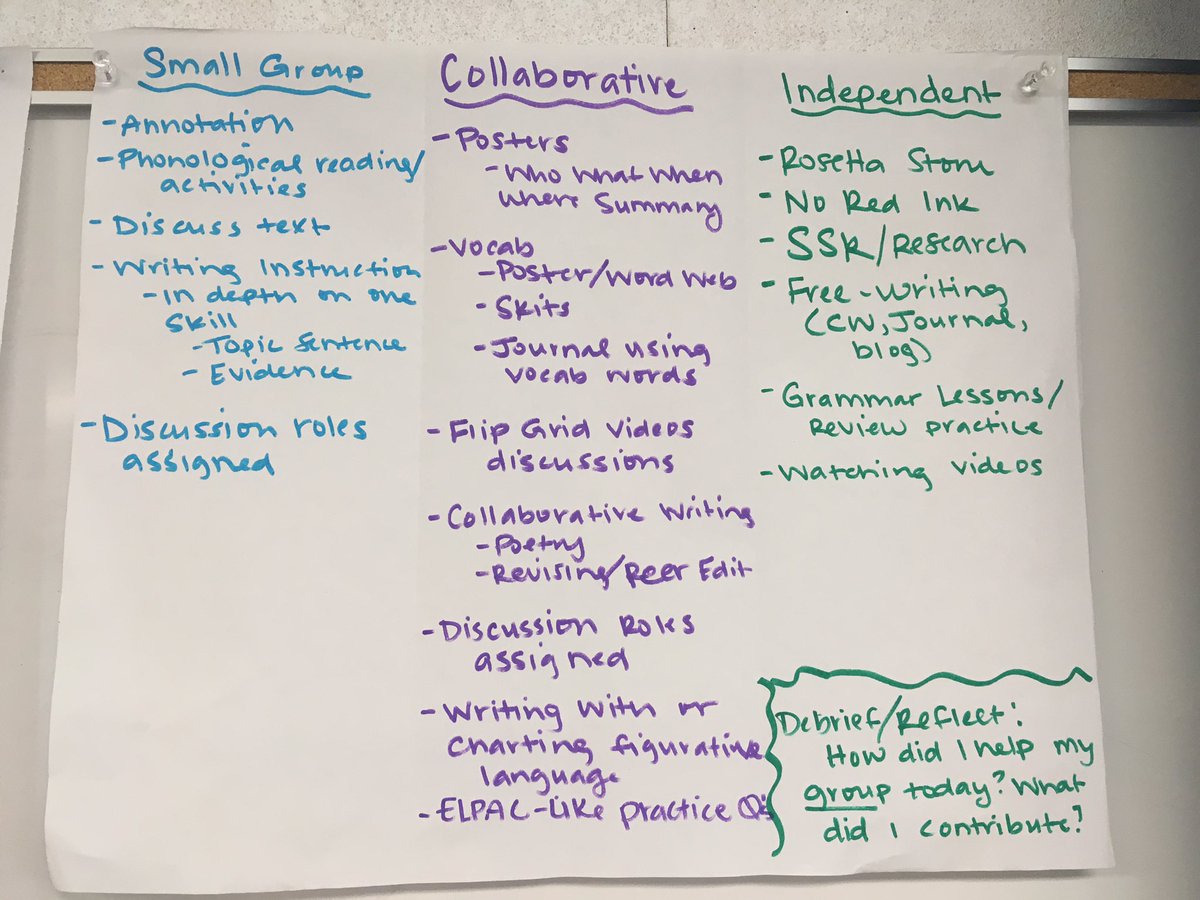 Small Group
- Annotation
- Phonological reading/
activities
- Discuss text
- Writing Instruction
- In depth on one
skill
- Topic Sentence
- Evidence
- Discussion roles
assigned
Collaborative
- Posters
- Who What When
Where Summary
- Vocab
- Poster/Word Web
- Skits
- Journal using
vocab words
- Flip Grid videos
discussions
- Collaborative Writing
- Poetry
- Revising/Peer Edit
- Discussion Roles
assigned
- Writing with or
charting figurative
language
- ELPAC-Like practice Q's
Independent
- Rosetta Stone
- No Red Ink
- SSR/Research
- Free-Writing
(CW, Journal,
blog)
- Grammar Lessons/
Review practice
- Watching videos
Debrief/Reflect:
How did I help my
group today? What
did I contribute?